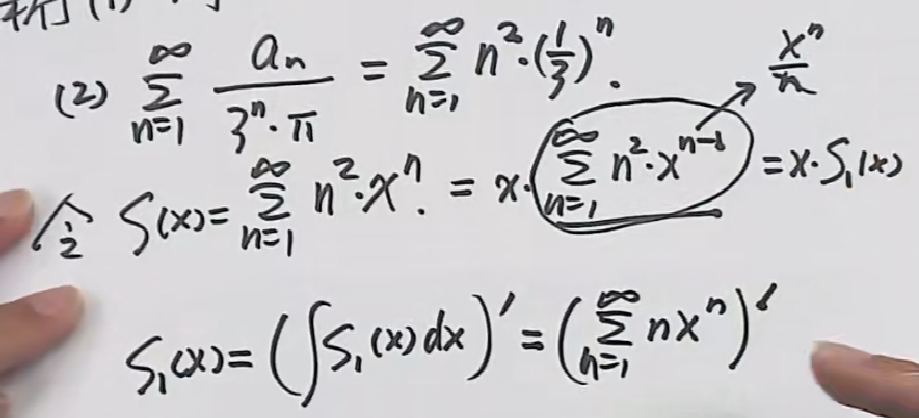 析 (1)
(2) \sum_{n=1}^{\infty} \frac{a_n}{3^n \cdot \pi} = \sum_{n=1}^{\infty} n^2 \cdot (\frac{1}{3})^n .
\frac{x^n}{n}
令 S(x) = \sum_{n=1}^{\infty} n^2 \cdot x^n . = x \cdot \sum_{n=1}^{\infty} n^2 \cdot x^{n-1} = x \cdot S_1(x)
S_1(x) = (\int S_1(x) dx)' = (\sum_{n=1}^{\infty} n x^n)'